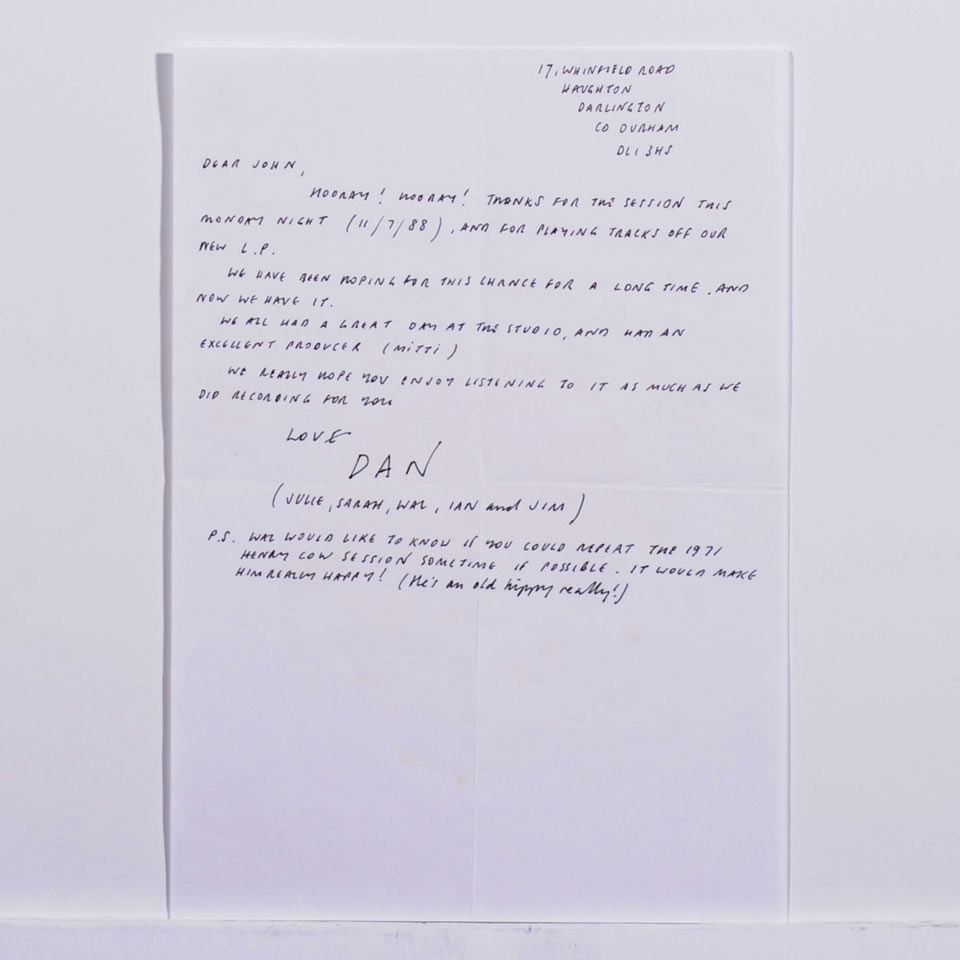 17, WHINFIELD ROAD
HAUGHTON
DARLINGTON
CO DURHAM
DL1 3HS
DEAR JOHN,
HOORAY! HOORAY! THANKS FOR THE SESSION THIS
MONDAY NIGHT (11/7/88), AND FOR PLAYING TRACKS OFF OUR
NEW L.P.
WE HAVE BEEN HOPING FOR THIS CHANCE FOR A LONG TIME. AND
NOW WE HAVE IT.
WE ALL HAD A GREAT DAY AT THE STUDIO, AND HAD AN
EXCELLENT PRODUCER (MITTI)
WE REALLY HOPE YOU ENJOY LISTENING TO IT AS MUCH AS WE
DID RECORDING FOR YOU
LOVE
DAN
(JULIE, SARAH, WAL, IAN and JIM)
P.S. WAL WOULD LIKE TO KNOW IF YOU COULD REPEAT THE 1971
HENRY COW SESSION SOMETIME IF POSSIBLE. IT WOULD MAKE
HIM REALLY HAPPY! (He's an old hippy really!)